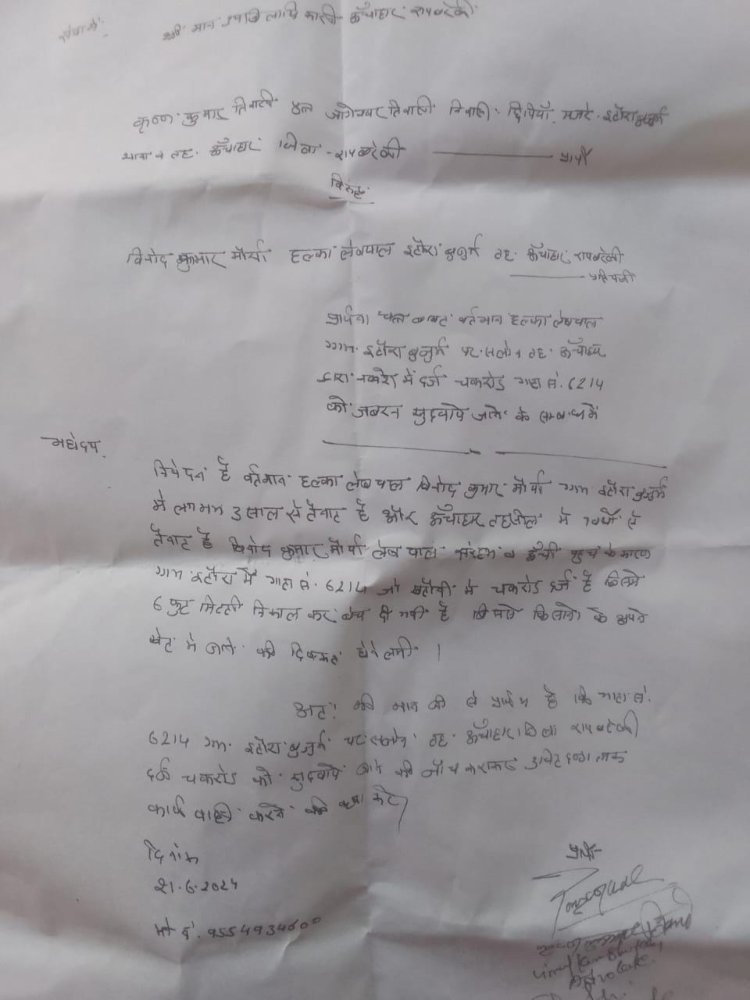 सेवा में,
श्री मान उपजिलाधिकारी ऊँचाहार रायबरेली
कृष्ण कुमार तिवारी S/o जागेश्वर तिवारी निवासी मजरे इटौरा बुजुर्ग
थाना व तह. ऊँचाहार जिला - रायबरेली प्रार्थी
विरुद्ध
विनोद कुमार मौर्या हल्का लेखपाल इटौरा बुजुर्ग तह. ऊँचाहार रायबरेली
प्रतिवादी
प्रार्थना पत्र बावत वर्तमान हल्का लेखपाल
ग्राम इटौरा बुजुर्ग पर. सलोन तह. ऊँचाहार
द्वारा नक्शे में दर्ज चकरोड गाटा सं. 6214
को जबरन खुदवाये जाने के सम्बन्ध में
महोदय,
निवेदन है वर्तमान हल्का लेखपाल विनोद कुमार मौर्या ग्राम इटौरा बुजुर्ग
में लगभग 3 साल से तैनात है और ऊँचाहार तहसील में से
तैनात है विनोद कुमार मौर्या लेखपाल व ऊँची पहुच के कारण
ग्राम इटौरा में गाटा सं. 6214 जो खतौनी में चकरोड दर्ज है जिसमे
6 फुट मिटटी निकाल कर बेच दी गयी है जिससे किसानो के अपने
खेत में जाने की दिक्कत होने लगी ।
अतः श्री मान जी से प्रार्थना है कि गाटा सं.
6214 ग्राम इटौरा बुजुर्ग पर. सलोन तह. ऊँचाहार जिला रायबरेली
दर्ज चकरोड को खुदवाये जाने की जाँच कराकर उचित दण्डात्मक
कार्यवाही करने की कृपा करें
दिनांक
21.6.2024
प्रार्थी
मो नं.